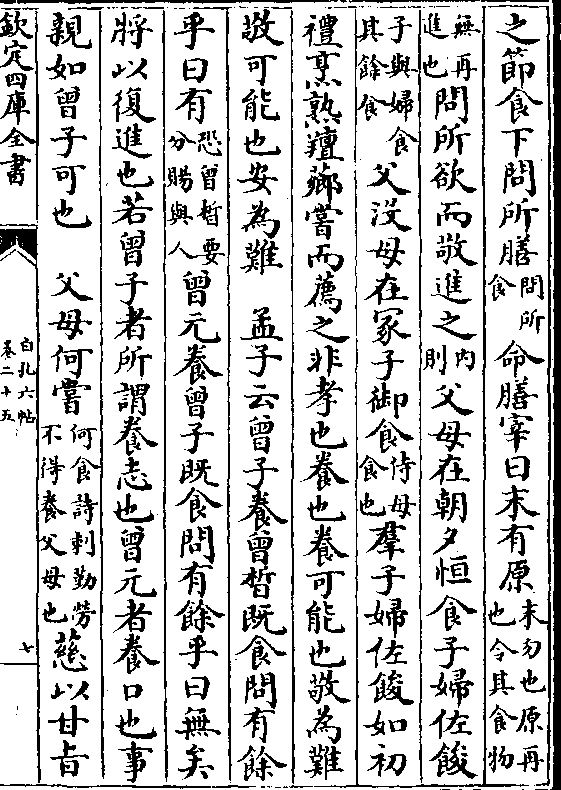 之節食下問所膳問所食命膳宰曰末有原末勿也原再也令其食物
無再進也問所欲而敬進之内則父母在朝夕恒食子婦佐餕
子與婦食其餘食父没母在冢子御食侍母食也羣子婦佐餕如初
禮烹熟羶薌嘗而薦之非孝也養也養可能也敬為難
敬可能也安為難　孟子云曾子養曾晳既食問有餘
乎曰有恐曾晳要分賜與人曾元養曾子既食問有餘乎曰無矣
將以復進也若曾子者所謂養志也曾元者養口也事
親如曾子可也　父母何嘗何食詩刺勤勞不得養父母也慈以甘旨
欽定四庫全書
白孔六帖
卷二十五
七